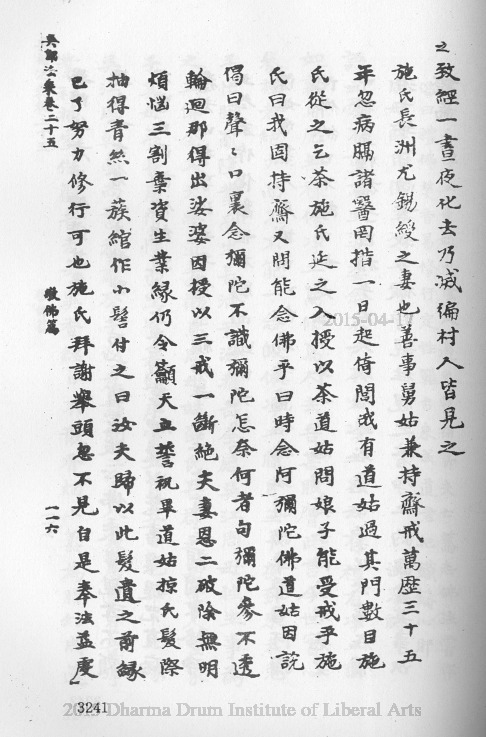 之致經一晝夜化去乃滅編村人皆見之
施氏長洲尤錫綬之妻也善事舅姑兼持齋戒萬歷三十五
年忽病膈諸醫罔措一日起倚閭或有道姑過其門數目施
氏從之乞茶施氏延之入授以茶道姑問娘子能受戒乎施
氏曰我固持齋又問能念佛乎曰時念阿彌陀佛道姑因說
偈曰聲〻口裏念彌陀不識彌陀怎奈何者句彌陀參不透
輪迴那得出娑婆因授以三戒一斷絕夫妻恩二破除無明
煩惱三割棄資生業緣仍令籲天立誓祝畢道姑掠氏髮際
抽得青絲一蔟綰作小髻付之曰汝夫歸以此髮遺之前緣
已了努力修行可也施氏拜謝舉頭忽不見自是奉法益虔
吳郡法乘卷二十五
敬佛篇
一一六
3241
2015-04-17
2015 Dharma Drum Institute of Liberal Arts